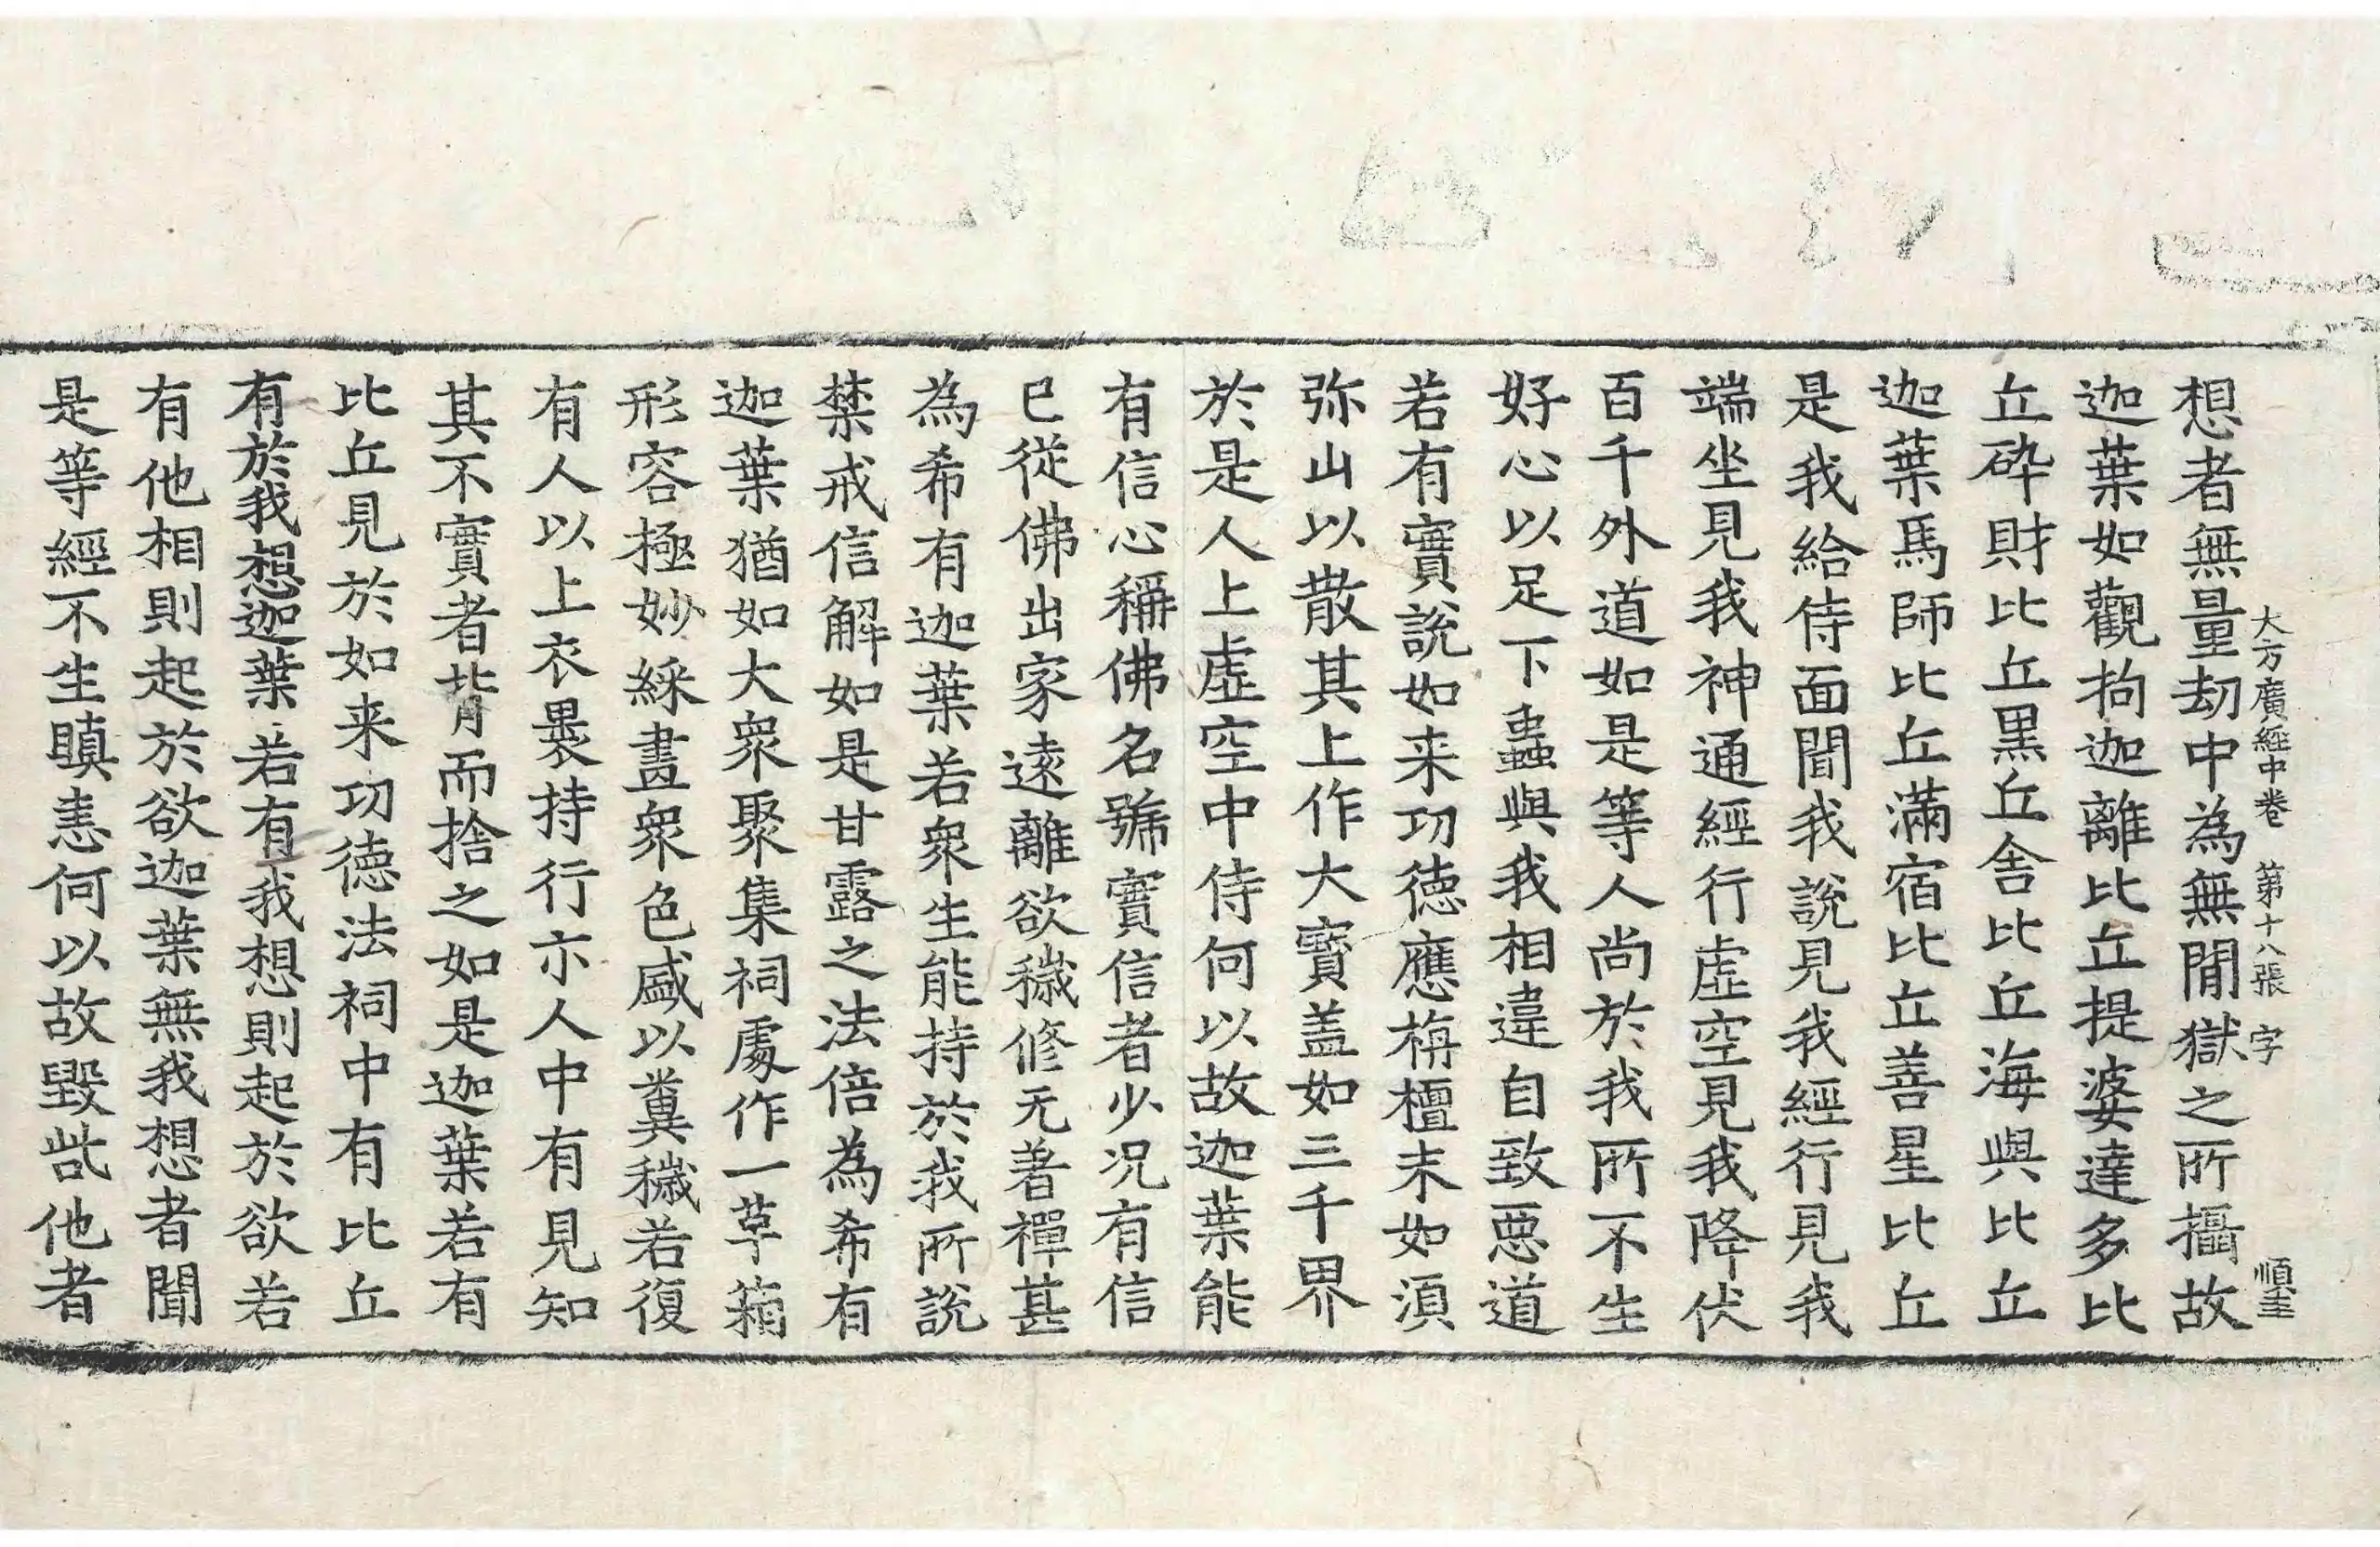 大方廣經中卷 第十八張 字 順圭
想者無量劫中為無間獄之所攝故
迦葉如觀拘迦離比丘提婆達多比
丘碎財比丘黑丘舍比丘海與比丘
迦葉馬師比丘滿宿比丘善星比丘
是我給侍面聞我說見我經行見我
端坐見我神通經行虛空見我降伏
百千外道如是等人尚於我所不生
好心以足下蟲與我相違自致惡道
若有實說如来功德應栴檀末如湏
弥山以散其上作大寶盖如三千界
於是人上虛空中侍何以故迦葉能
有信心稱佛名號實信者少况有信
已從佛出家遠離欲穢修无著禪甚
為希有迦葉若衆生能持於我所說
禁戒信解如是甘露之法倍為希有
迦葉猶如大衆聚集祠處作一草箱
形容極妙綵畫衆色盛以糞穢若復
有人以上衣褁持行示人中有見知
其不實者背而捨之如是迦葉若有
比丘見於如来功德法祠中有比丘
有於我想迦葉若有我想則起於欲若
有他相則起於欲迦葉無我想者聞
是等經不生瞋恚何以故毀呰他者